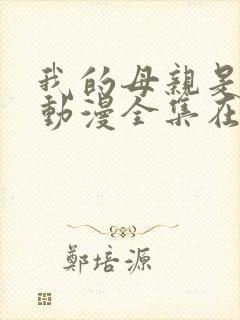 我的母親是
動漫全集在
鄭培源